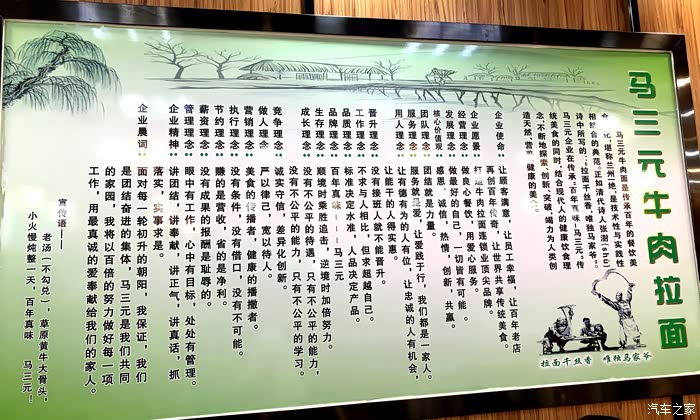 马三元牛肉拉面
马三元牛肉面是传承百年的餐饮美
堪称兰州一绝,是技术性与实践性
相结合的典范。正如清代诗人张澍(shù)
诗中所写的:"拉面千丝香,唯独马家爷"。
马三元企业在传承"百年真味·马三元"传
统美食的同时,结合现代人的健康饮食理
念,不断地探索、创新、突破,竭力为人类创
造天然、营 健康的
拉面千丝香 唯独马家爷
企业使命:让顾客满意,让员工幸福,让百年老店
再创百年传奇,让世界共享传统美食。
企业愿景:打造牛肉拉面连锁业顶尖品牌。
经营理念:做良心餐饮,用爱心服务。
发展理念:做最好的自己,一切皆有可能。
核心价值观:感恩,诚信,热情,创新,共赢。
团队理念:团结就是力量。
服务理念:服务就是爱,让爱践于行,我们都是一家人。
用人理念:让有德有为的人有位,让忠诚的人有机会,
让能干的人得实惠。
晋升理念:没有接班人就不能晋升。
工作理念:不求与人相比,但求超越自己。
品质理念:标准决定水准,人品决定产品。
品牌理念:百年真味——马三元
生存理念:顺境时乘胜追击,逆境时加倍努力。
成长理念:没有不公平的待遇,只有不公平的能力,
没有不公平的能力,只有不公平的学习。
竞争理念:诚实守信,差异化创新。
做人理念:严以律己,宽以待人。
营销理念:美食的传播者,健康的播撒者。
执行理念:没有条件,没有借口,没有不可能。
节约理念:赚的是营收,省的是净利。
薪资理念:没有成果的报酬是耻辱的。
管理理念:眼中有工作,心中有目标,处处有管理。
企业精神:讲团结,讲奉献,讲正气,讲真话,抓
落实,实事求是。
企业晨词:面对每一轮初升的朝阳,我保证,我们
是团结奋进的集体,马三元是我们共同
的家园,我将以百倍的努力做好每一项
工作,用最真诚的爱奉献给我们的家人。
宣传语——
老汤(不勾兑),草原黄牛大骨头,
小火慢炖整一天,百年真味 马三元!
汽车之家